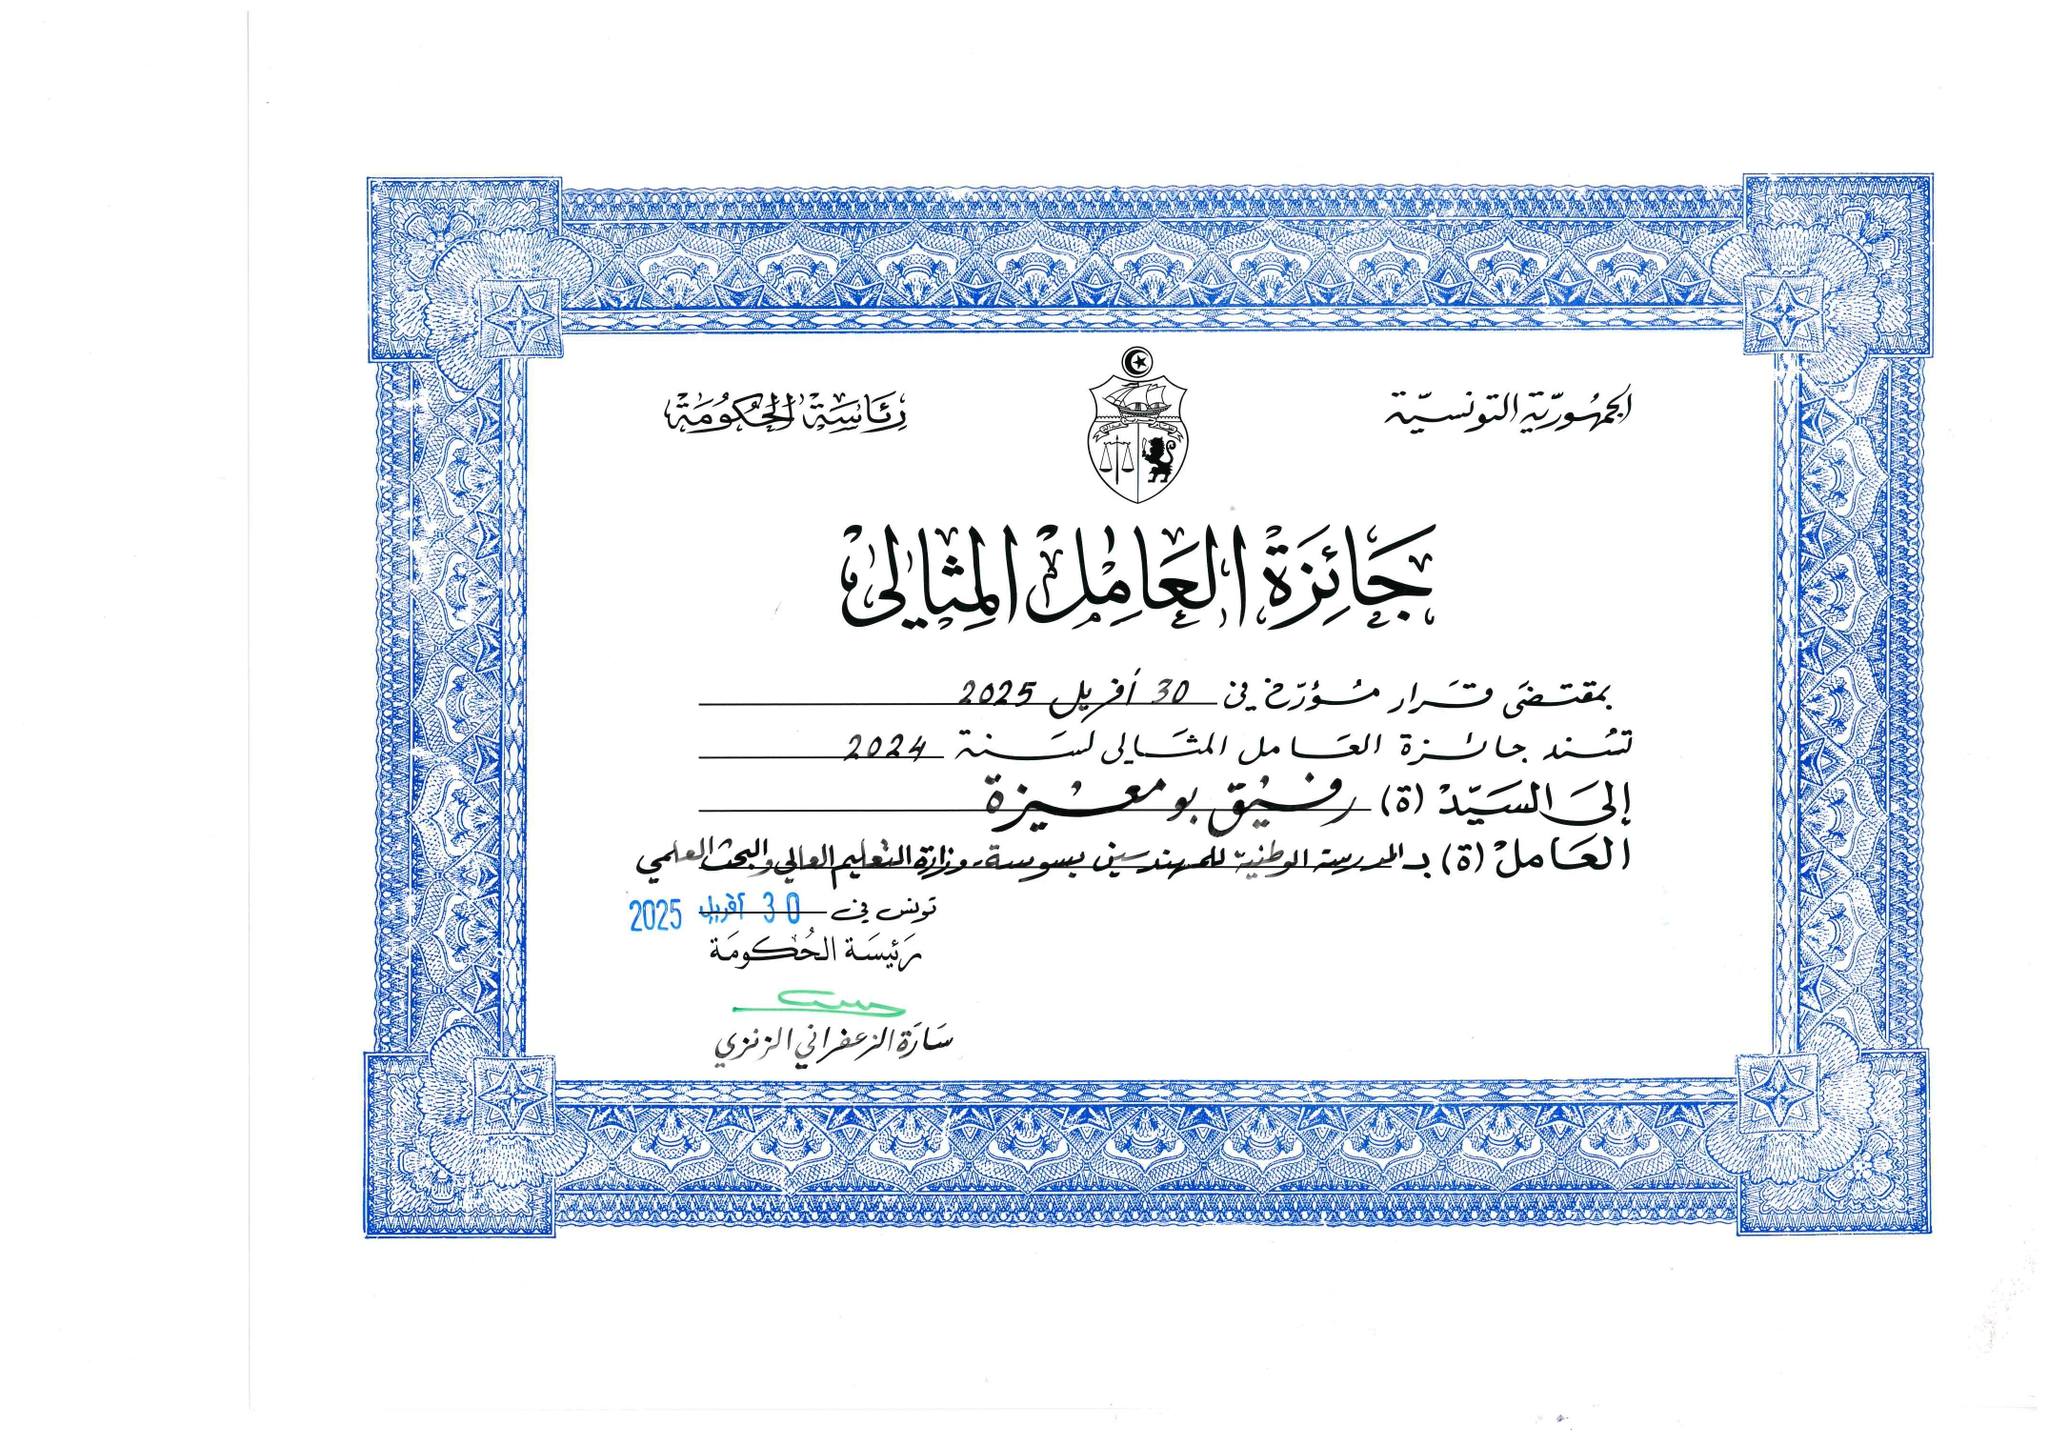 الجمهوريّة التونسيّة
رئَاسَة الحُكُومَة
جَائِزَة العَامِل المِثالي
بمقتضَى قَرار مُؤرّخ في 30 أفريل 2025
تسُند جائزة العَامل المثَالي لسَنة 2024
إلىَ السَيّد (ة) رفيق بومعيزة
العَامل (ة) بـ المدرسة الوطنية للمهندسين بسوسة - وزارة التعليم العالي والبحث العلمي
تونس في 30 أفريل 2025
رَئيسَة الحُكومَة
سَارَة الزعفراني الزنزري